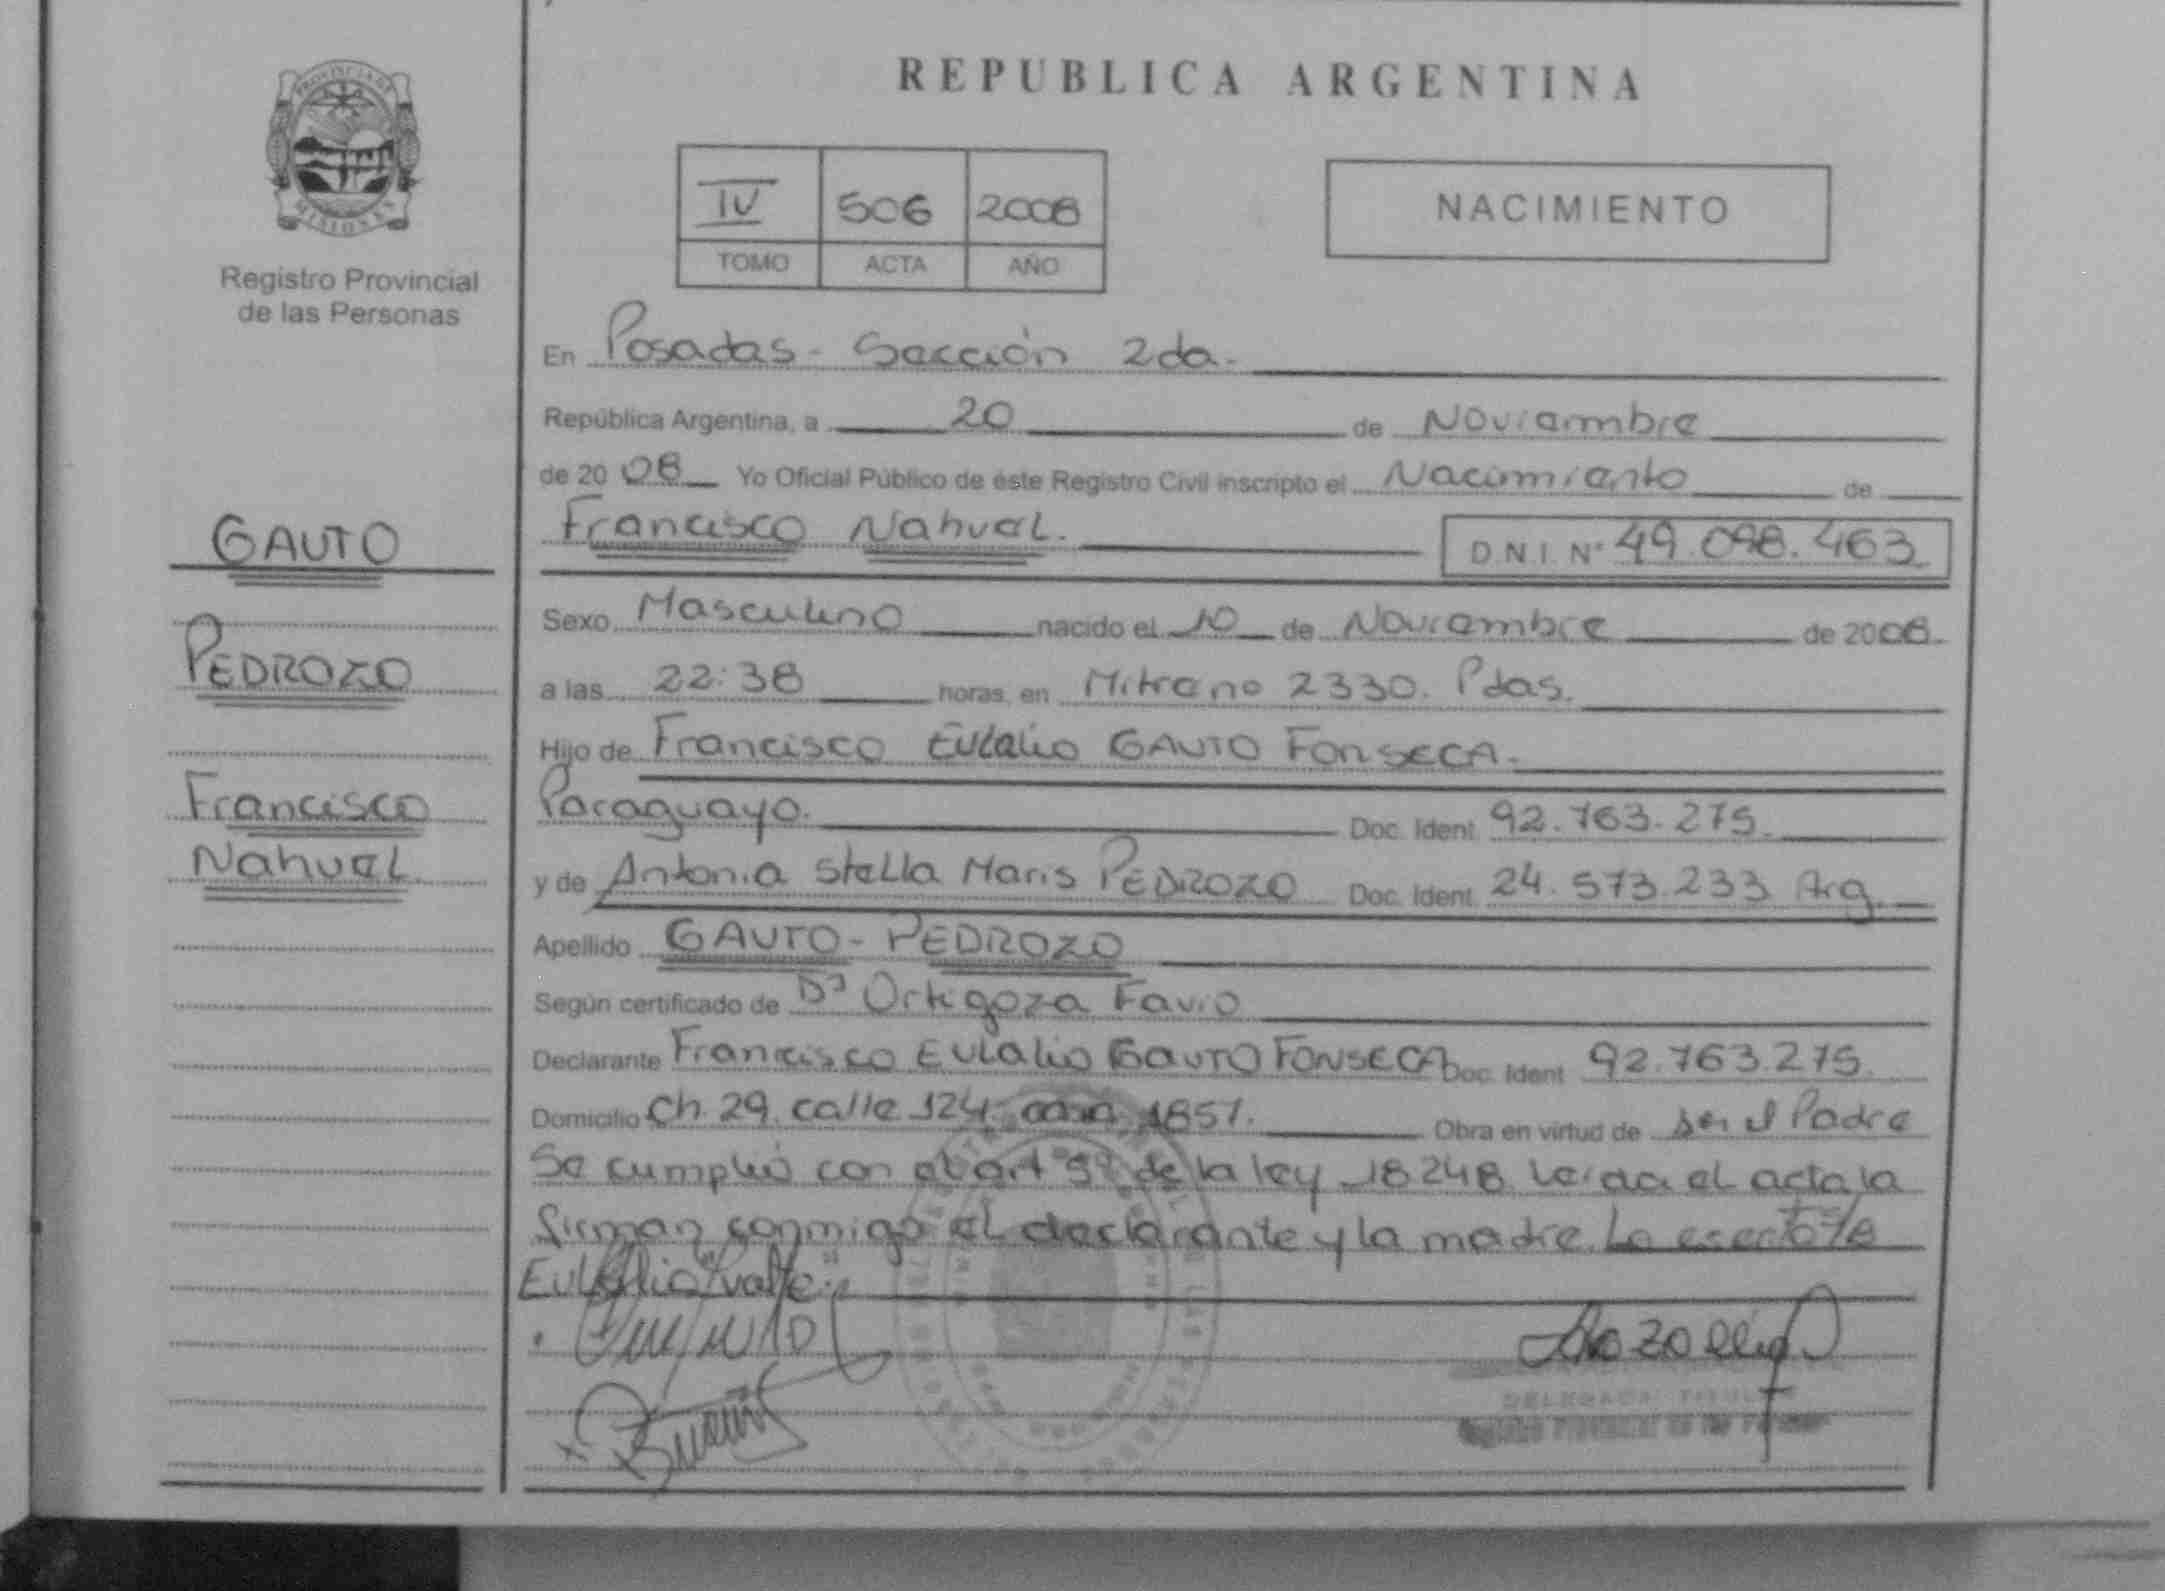 PROVINCIA DE
MISIONES
Registro Provincial
de las Personas
GAUTO
PEDROZO
Francisco
Nahuel
REPUBLICA ARGENTINA
IV 506 2008
TOMO ACTA AÑO
NACIMIENTO
En Posadas - Sección 2da.
República Argentina, a 20 de Noviembre
de 2008 Yo Oficial Público de éste Registro Civil inscripto el Nacimiento de
Francisco Nahuel. D.N.I. Nº 49.098.463
Sexo Masculino nacido el 10 de Noviembre de 2008.
a las 22:38 horas, en Mitre no 2330. Pdas.
Hijo de Francisco Eulalio GAUTO FONSECA.
Paraguayo. Doc. Ident. 92.763.275.
y de Antonia Stella Maris PEDROZO Doc. Ident. 24.573.233 Arg.
Apellido GAUTO - PEDROZO
Según certificado de Dr Ortigoza Favio
Declarante Francisco Eulalio GAUTO FONSECA Doc. Ident. 92.763.275.
Domicilio Ch. 29. calle 124 casa 1851. Obra en virtud de ser el Padre
Se cumplió con el art 5º de la ley 18248 Leida el acta la
firman conmigo el declarante y la madre. Lo
Eulalio "vale".
DELEGADA TITULAR
Registro Provincial de las Personas